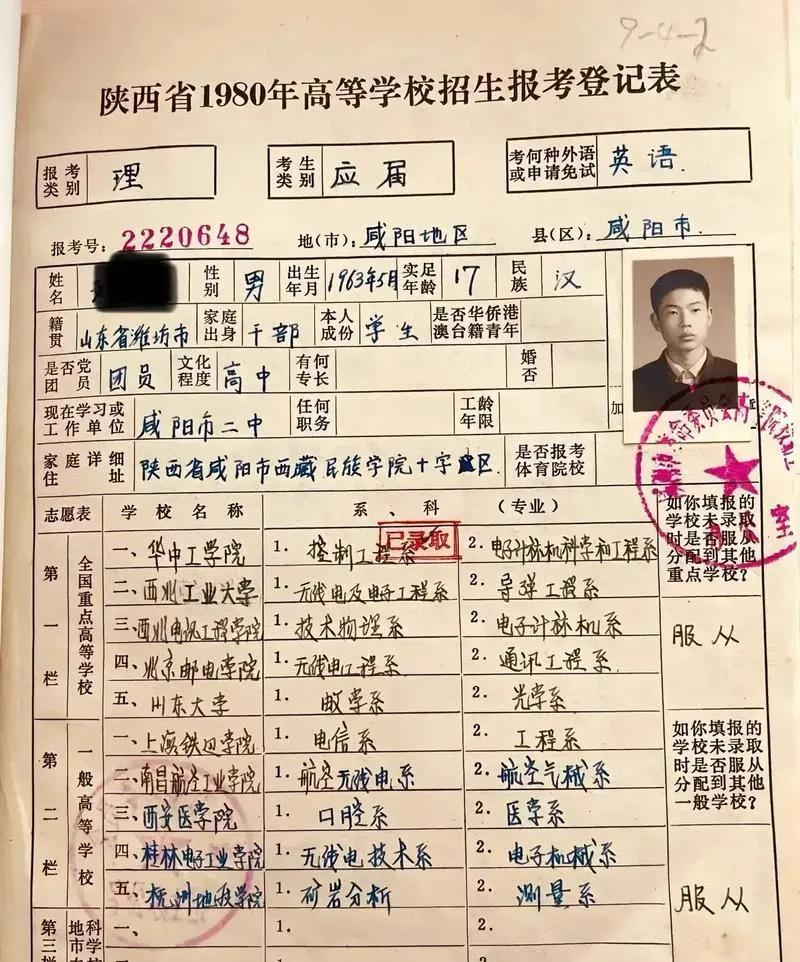 9-4-2
陕西省1980年高等学校招生报考登记表
报考类别 理 考生类别 应届 考何种外语或申请免试 英语
报考号: 2220648 地(市): 咸阳地区 县(区): 咸阳市
姓名 性别 男 出生年月 1963年5月 实足年龄 17 民族 汉
籍贯 山东省潍坊市 家庭出身 干部 本人成份 学生 是否华侨港澳台籍青年
是否党团员 团员 文化程度 高中 有何专长 婚否
现在学习或工作单位 咸阳市二中 任何职务 工龄年限 加
家庭详细住址 陕西省咸阳市西藏民族学院十字 区 是否报考体育院校
志愿表 学校名称 系、科 (专业) 如你填报的学校未录取时是否服从分配到其他重点学校?
已录取
第一栏 全国重点高等学校
一、华中工学院 1. 控制工程系 2. 电子计标机科学和工程系
二、西北工业大学 1. 无线电及电子工程系 2. 导弹工程系
三、西北电讯工程学院 1. 技术物理系 2. 电子计标机系 服从
四、北京邮电学院 1. 无线电工程系 2. 通讯工程系
五、山东大学 1. 数学系 2. 光学系
第二栏 一般高等学校 如你填报的学校未录取时是否服从分配到其他一般学校?
一、上海铁道学院 1. 电信系 2. 工程系
二、南昌航空工业学院 1. 航空无线电系 2. 航空气械系
三、西安医学院 1. 口腔系 2. 医学系
四、桂林电子工业学院 1. 无线电技术系 2. 电子机械系 服从
五、杭州地政学院 1. 矿岩分析 2. 测量系
第三栏 一、 1. 2.